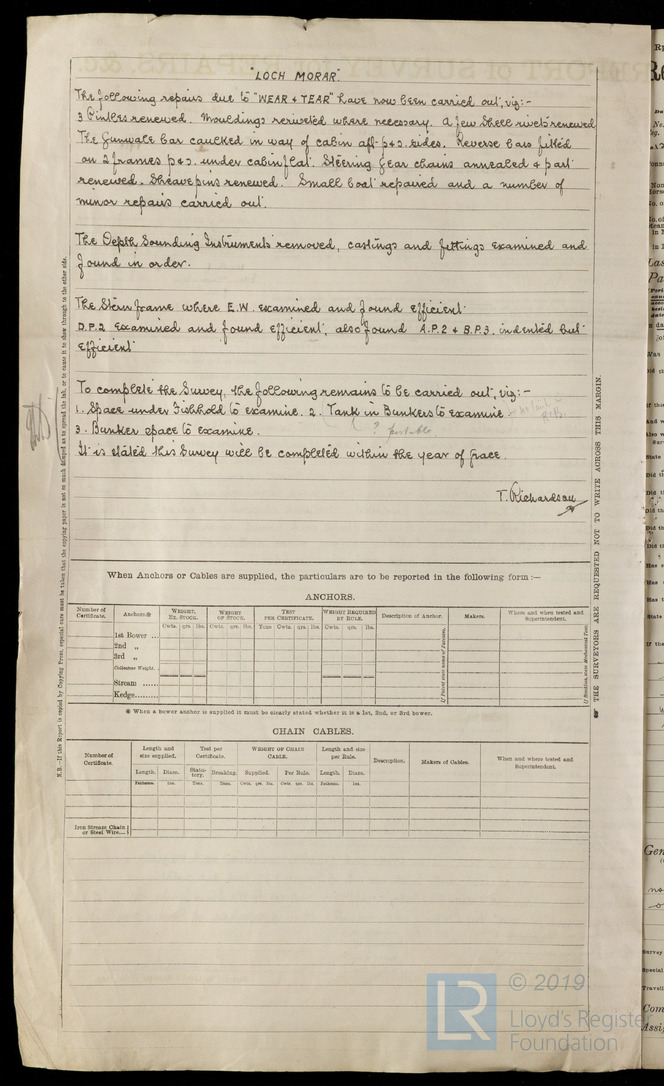 "LOCH MORAR".
The following repairs due to "WEAR & TEAR" have now been carried out, viz:-
3 Pintles renewed. Mouldings reriveted where necessary. A few Shell rivets renewed
The Gunwale bar caulked in way of cabin aft p & s. sides. Reverse bars fitted
on 2 frames p & s. under cabin flat. Steering Gear chains annealed & part
renewed. Sheave pins renewed. Small boat repaired and a number of
minor repairs carried out.
The Depth Sounding Instruments removed, castings and fittings examined and
found in order.
The Stern frame where E.W. examined and found efficient
D.P.2 examined and found efficient, also found A.P.2 & B.P.3. indented but
efficient
To complete the Survey, the following remains to be carried out, viz:-
1. Space under Fishhold to examine. 2. Tank in Bunkers to examine
3. Bunker space to examine. ? portable
It is stated this Survey will be completed within the year of grace.
T. Richardson
When Anchors or Cables are supplied, the particulars are to be reported in the following form :—
ANCHORS.
Number of Certificate. Anchors.* WEIGHT, EX. STOCK. WEIGHT OF STOCK. TEST PER CERTIFICATE. WEIGHT REQUIRED BY RULE. Description of Anchor. Makers. Where and when tested and Superintendent.
Cwts. qrs. lbs. Cwts. qrs. lbs. Tons Cwts. qrs. lbs. Cwts. qrs. lbs.
1st Bower ...
2nd „
3rd „
Collective Weight.
Stream ......
Kedge.........
* When a bower anchor is supplied it must be clearly stated whether it is a 1st, 2nd, or 3rd bower.
CHAIN CABLES.
Number of Certificate. Length and size supplied. Test per Certificate. WEIGHT OF CHAIN CABLE. Length and size per Rule. Description. Makers of Cables. When and where tested and Superintendent.
Length. Diam. Statutory. Breaking. Supplied. Per Rule. Length. Diam.
Fathoms. Ins. Tons. Tons. Cwts. qrs. lbs. Cwts. qrs. lbs. Fathoms. Ins.
Iron Stream Chain or Steel Wire...
N.B.—If this Report is copied by Copying Press, especial care must be taken that the copying paper is not so much damped as to spread the ink, or to cause it to show through to the other side.
THE SURVEYORS ARE REQUESTED NOT TO WRITE ACROSS THIS MARGIN.
LR
© 2019
Lloyd's Register
Foundation